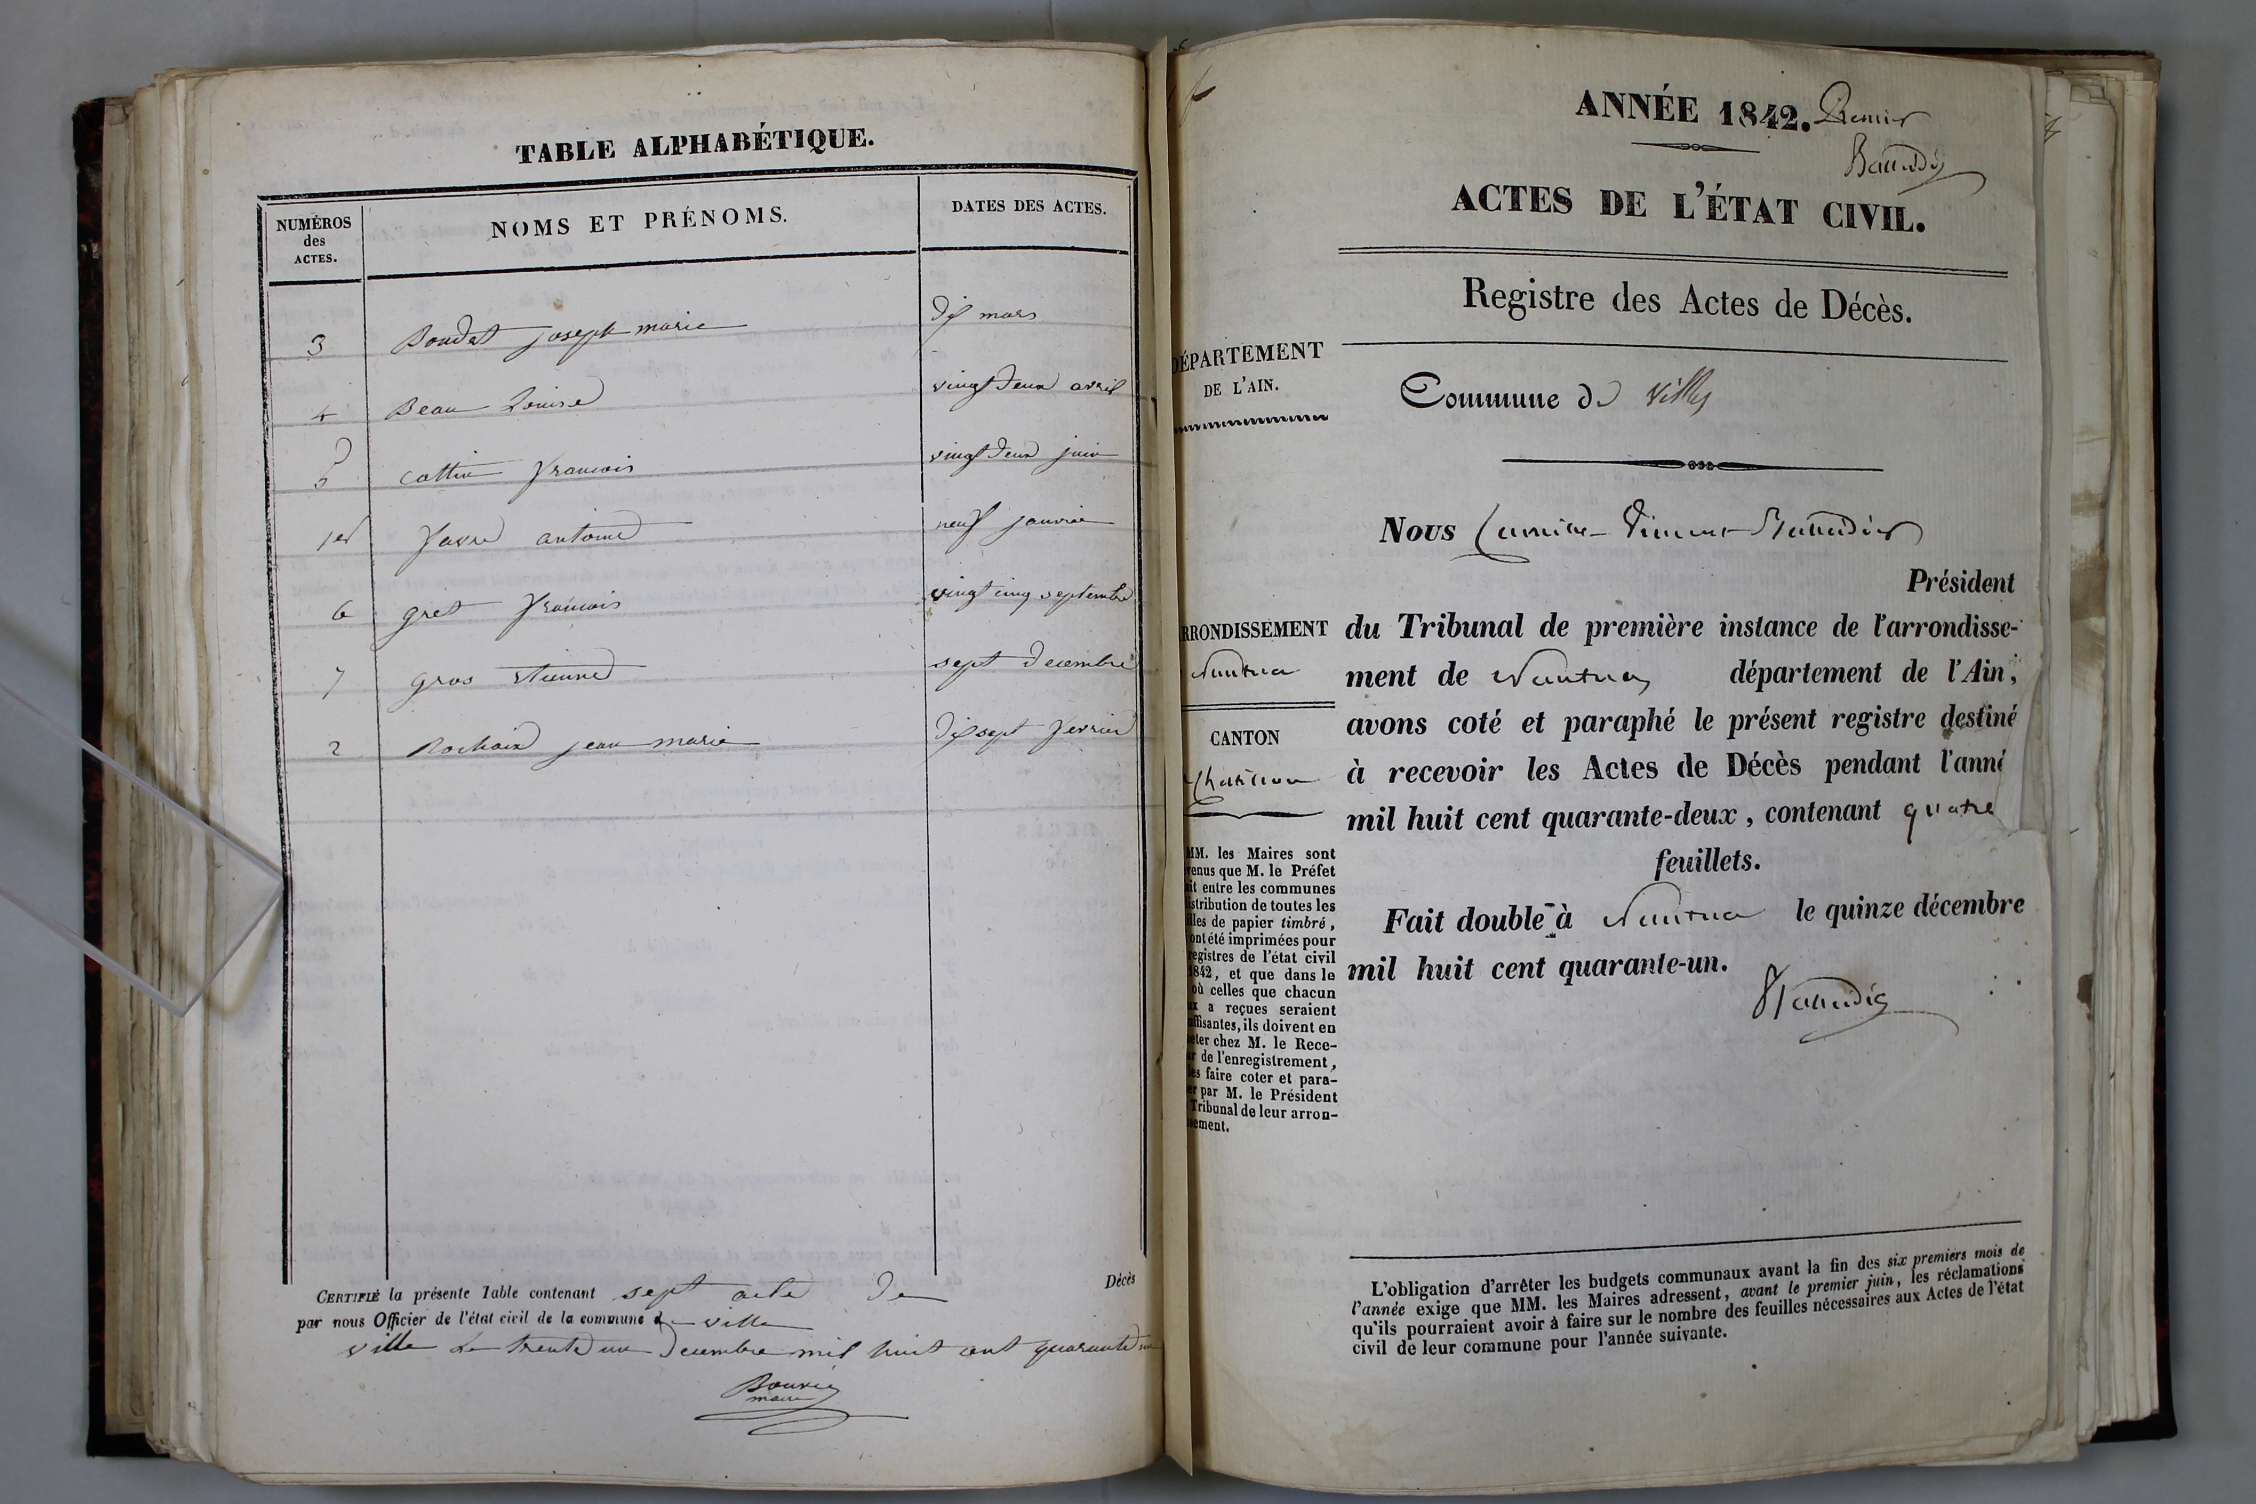 TABLE ALPHABÉTIQUE.
NUMÉROS
des
ACTES.
NOMS ET PRÉNOMS.
DATES DES ACTES.
3 Boudet joseph marie dix mars
4 Beau Louise vingt deux avril
5 Cottin francois vingt deux juin
1er favre antoine neuf janvier
6 gret francois vingt cinq septembre
7 gros etienne sept decembre
2 Rochaix jean marie dix sept fevrier
CERTIFIÉ la présente Table contenant sept acte de Décès
par nous Officier de l'état civil de la commune de ville
ville Le trente un decembre mil huit cent quarante un
Bouvier
maire
ANNÉE 1842. Premier
Baudier
ACTES DE L'ÉTAT CIVIL.
Registre des Actes de Décès.
DÉPARTEMENT
DE L'AIN.
Commune de Villes
Nous Vincent
Président
RRONDISSEMENT
Nantua
CANTON
Chatillon
du Tribunal de première instance de l'arrondisse-
ment de Nantua département de l'Ain,
avons coté et paraphé le présent registre destiné
à recevoir les Actes de Décès pendant l'anné
mil huit cent quarante-deux, contenant quatre
feuillets.
Fait double à Nantua le quinze décembre
mil huit cent quarante-un.
MM. les Maires sont
venus que M. le Préfet
it entre les communes
stribution de toutes les
lles de papier timbré,
ont été imprimées pour
registres de l'état civil
1842, et que dans le
où celles que chacun
ux a reçues seraient
uffisantes, ils doivent en
eter chez M. le Rece-
r de l'enregistrement,
es faire coter et para-
er par M. le Président
Tribunal de leur arron-
sement.
L'obligation d'arrêter les budgets communaux avant la fin des six premiers mois de
l'année exige que MM. les Maires adressent, avant le premier juin, les réclamations
qu'ils pourraient avoir à faire sur le nombre des feuilles nécessaires aux Actes de l'état
civil de leur commune pour l'année suivante.